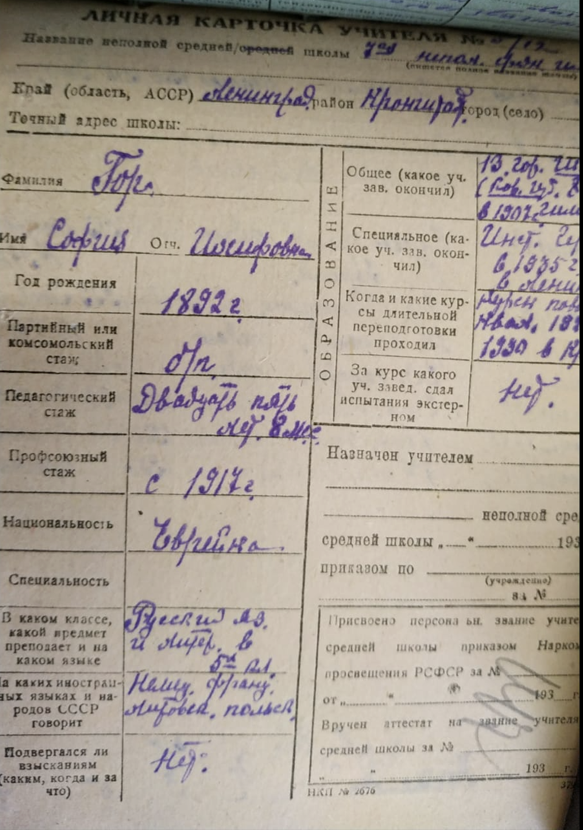 ЛИЧНАЯ КАРТОЧКА УЧИТЕЛЯ №
Название неполной средней/средней школы 7ая непол.
Край (область, АССР) Ленинград. район Кронштад. город (село)
Точный адрес школы:
Фамилия Гор.
Имя София Отч. Иосифовна
Год рождения 1892 г.
Партийный или
комсомольский
стаж
б/п
Педагогический
стаж
Двадцать пять
лет
Профсоюзный
стаж
с 1917 г.
Национальность Еврейка
Специальность
В каком классе,
какой предмет
преподает и на
каком языке
Русский яз.
и литер. в
5х кл.
На каких иностран-
ных языках и на-
родов СССР
говорит
Немец. франц.
литовск. польск.
Подвергался ли
взысканиям
(каким, когда и за
что)
Нет.
ОБРАЗОВАНИЕ
Общее (какое уч.
зав. окончил)
в 1907
Специальное (ка-
кое уч. зав. окон-
чил)
Инст.
в 1935 г
в Ленин
Когда и какие кур-
сы длительной
переподготовки
проходил
Курсы
квал.
в
За курс какого
уч. завед. сдал
испытания экстер-
ном
Нет.
Назначен учителем
неполной сре
средней школы „ “ 193
приказом по
(учреждение)
за №
Присвоено персональн. звание учите
средней школы приказом Нарко
просвещения РСФСР за №
от „ “ 193 г
Вручен аттестат на звание учителя
средней школы за №
„ “ 193 г.
НКП № 2676